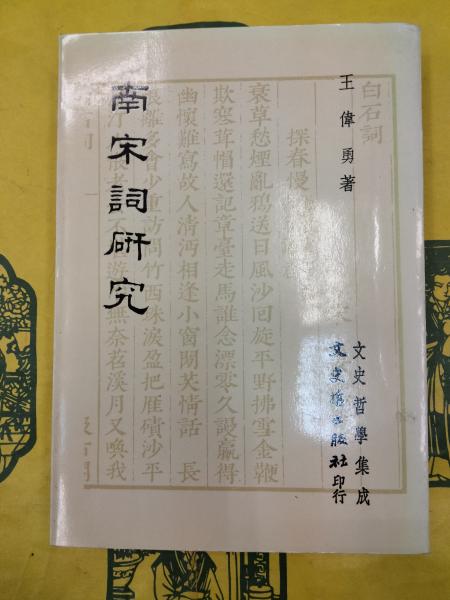 白石詞
王偉勇著
探春慢
衰草愁煙亂鴉送日風沙回旋平野拂雪金鞭
欺寒茸帽還記章臺走馬誰念漂零久謾贏得
幽懷難寫故人清沔相逢小窗閑共情話 長
離多會少重訪問竹西珠淚盈把雁磧沙平
無奈苕溪月又喚我
南宋詞研究
文史哲學集成
文史哲出版社印行